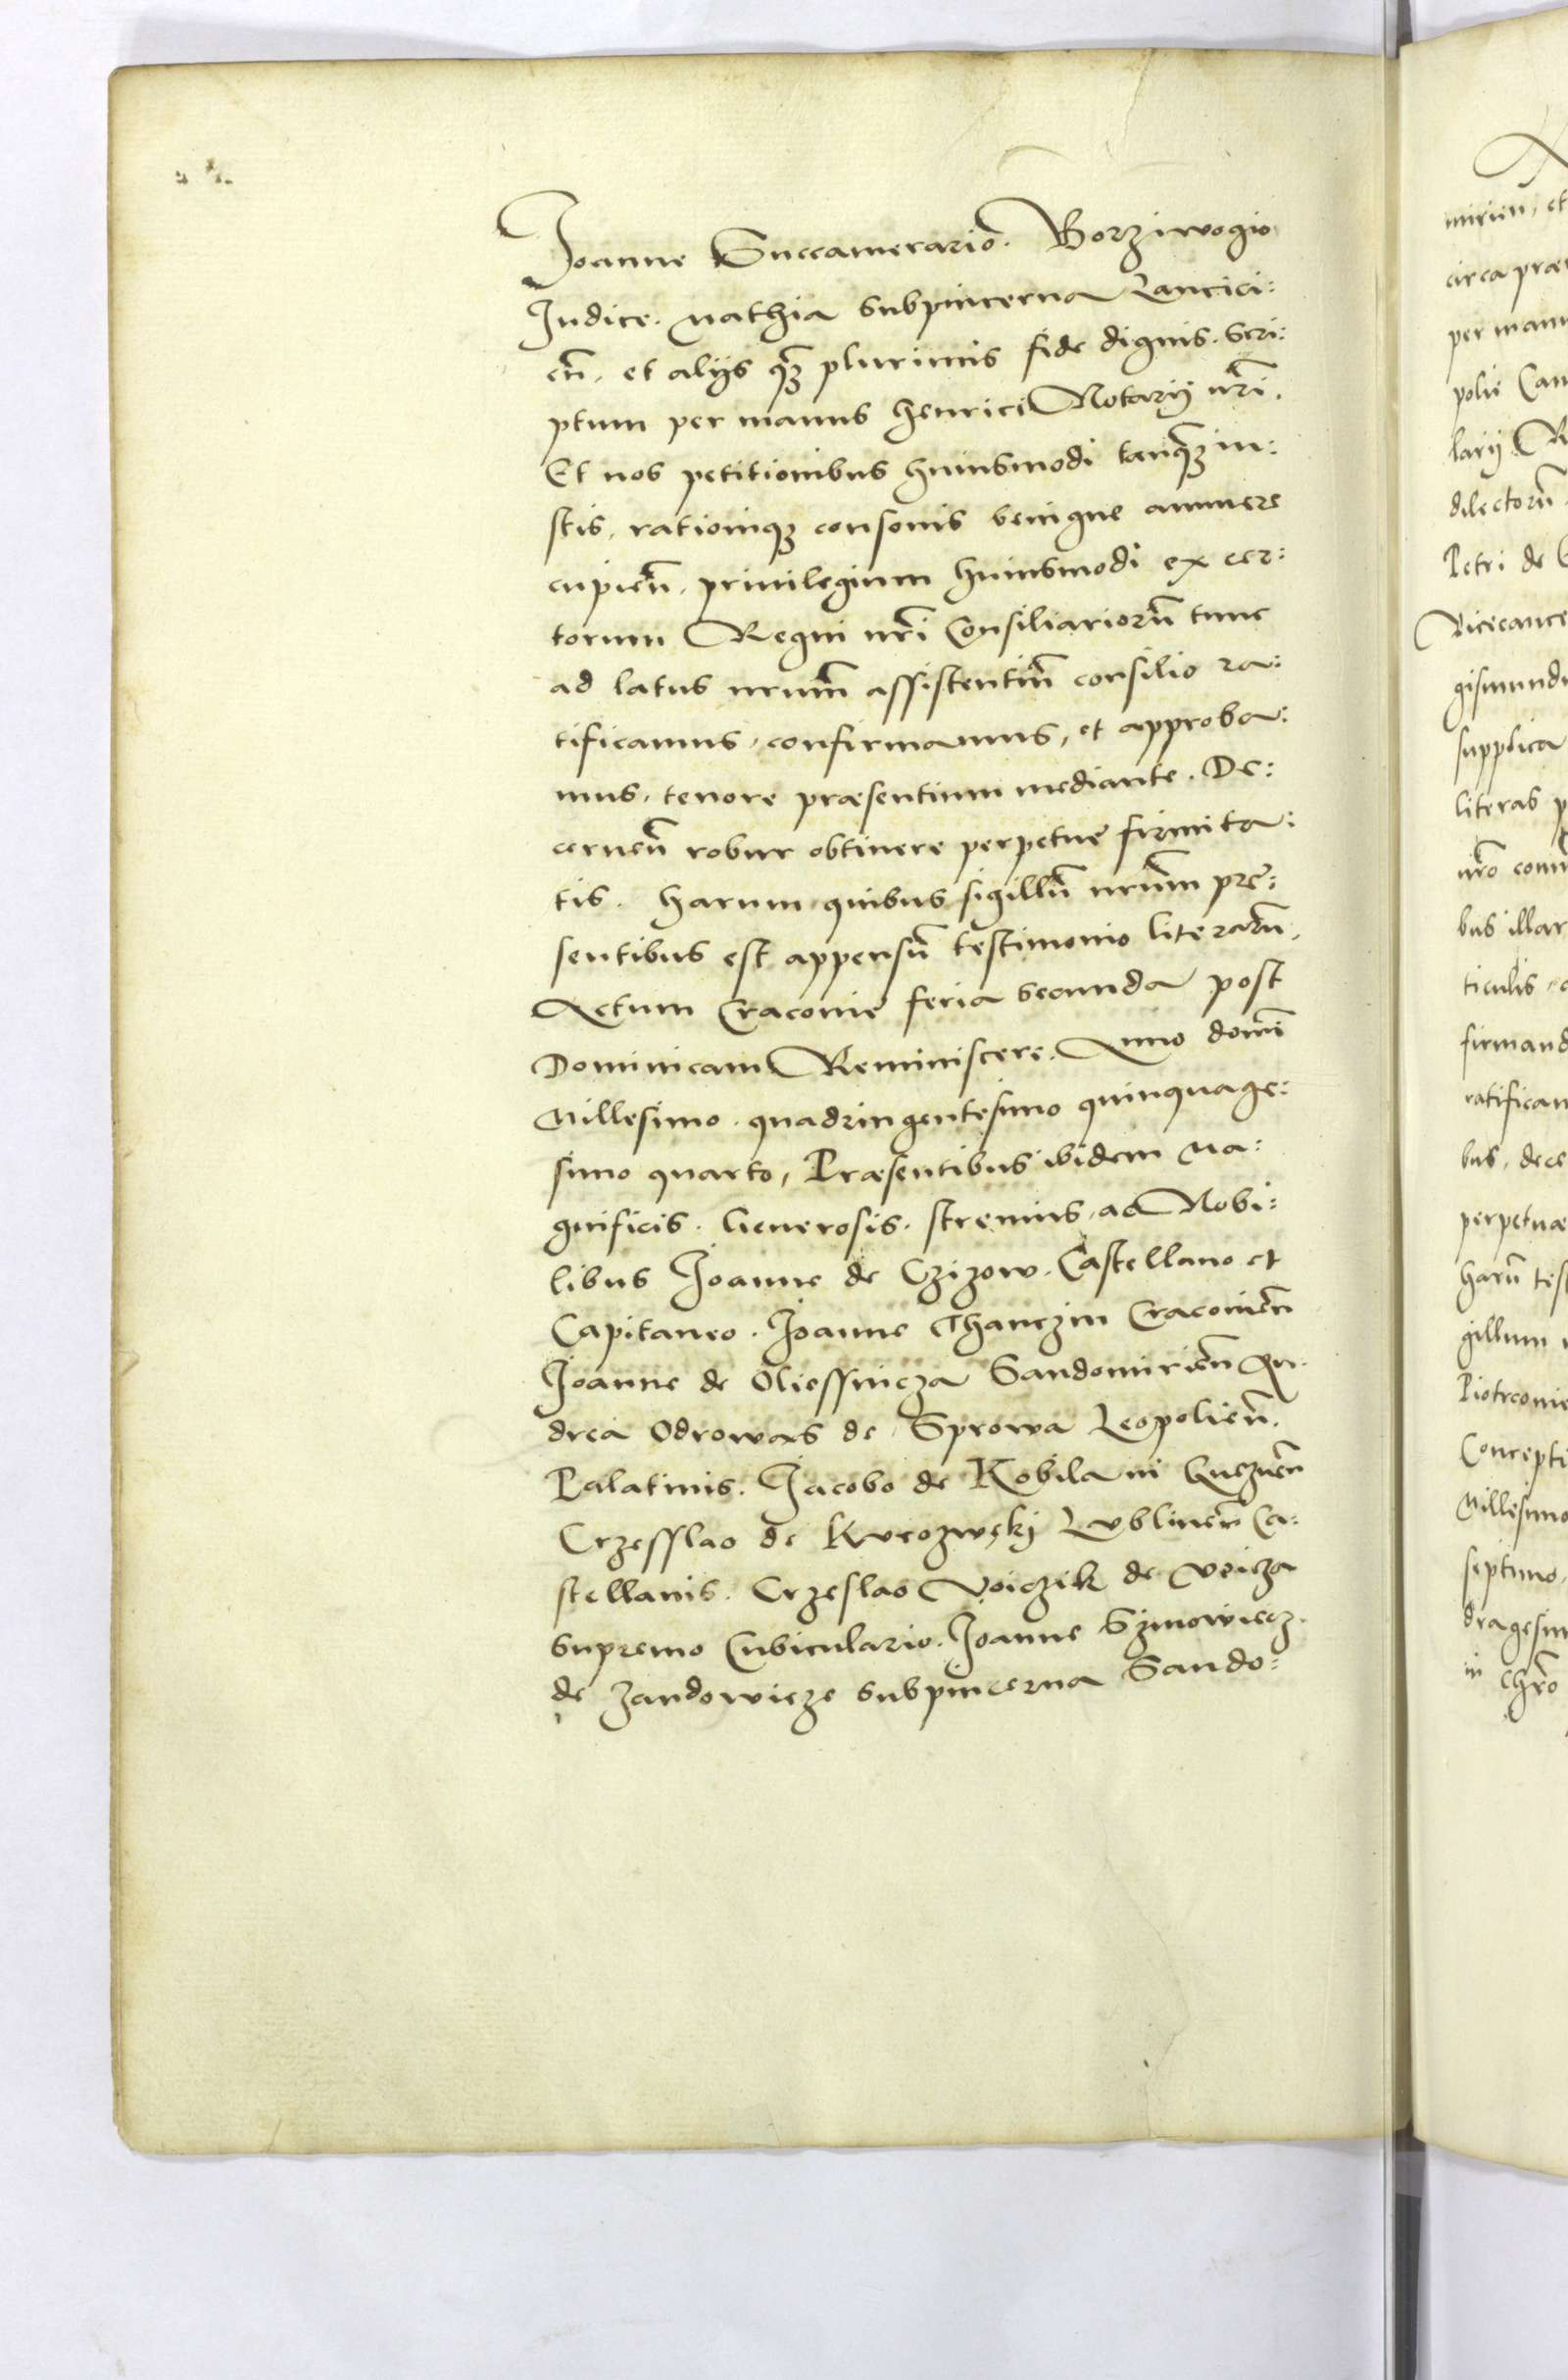 Joanne Succamerario. Borziwogio
Judice. Mathia Subpincerna Lancici:
eñ. et alijs qʒ̃ plurimis fide dignis. Scri:
ptum per manus Henrici Notarij nr̃i.
Et nos petitionibus huiusmodi tanqʒ̃ iu:
stis, rationiqʒ consonis benigne annuere
cupieñ. priuilegium huiusmodi ex cer:
torum Regni nr̃i Consiliariorũ tunc
ad latus nrum̃ assistentiũ consilio ra:
tificamus, confirmamus, et approba:
mus, tenore præsentium mediante. De:
cerneñ robur obtinere perpetuę firmita:
tis. Harum quibus sigillũ nrum̃ prę:
sentibus est appensũ testimonio literarũ.
Actum Cracouię feria secunda post
Dominicam Reminiscere. Anno domĩ
Millesimo. quadringentesimo quinquage:
simo quarto, Præsentibus ibidem Ma:
gnificis. Generosis. strenuis, ac Nobi:
libus Joanne de Czizow. Castellano et
Capitaneo. Joanne Thanczin Cracouieñ
Joanne de Oliessnicza Sandomirieñ An:
drea Odrowas de Sprowa Leopolieñ.
Palatinis. Jacobo de Kobilani Gneznẽn
Crzesslao de Kurozwękj Lublineñ Ca:
stellanis. Crzeslao Voiczik de Voicza
Supremo Cubiculario. Joanne Szmowicz.
de Jandowicze Subpincerna Sando:
mirieñ, et
per man
dilectorũ
Petri de
gismund
supplica
literas
bus illar
firmand
ratifican
perpetuæ
harũ test
gillum
Concepti
Millesimo
septimo,
dragesim
in Chr̃o